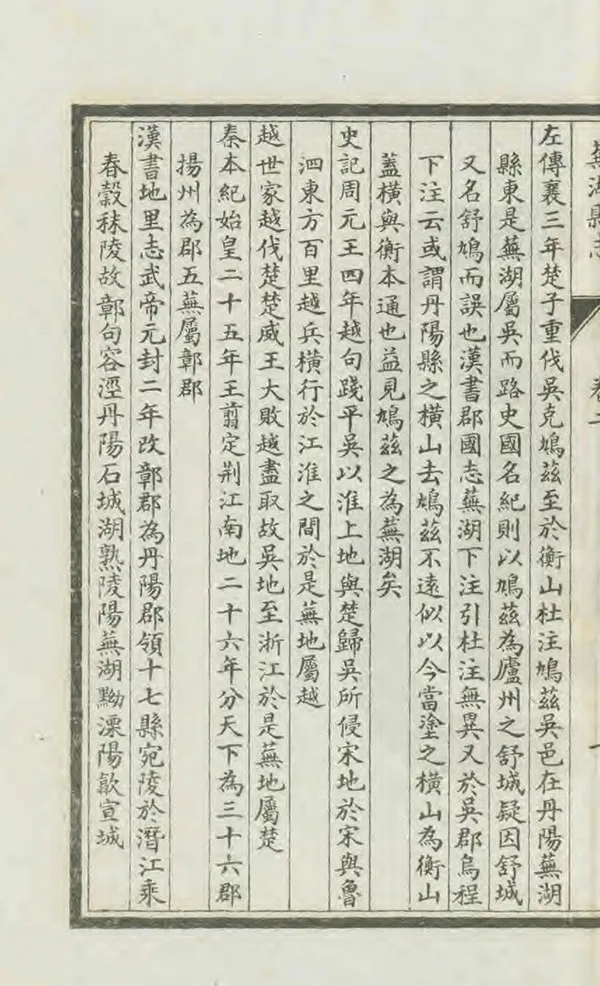 蕪湖縣志
卷二
左傳襄三年楚子重伐吳克鳩茲至於衡山杜注鳩茲吳邑在丹陽蕪湖
縣東是蕪湖屬吳而路史國名紀則以鳩茲為廬州之舒城疑因舒城
又名舒鳩而誤也漢書郡國志蕪湖下注引杜注無異又於吳郡烏程
下注云或謂丹陽縣之橫山去鳩茲不遠似以今當塗之橫山為衡山
蓋橫與衡本通也益見鳩茲之為蕪湖矣
史記周元王四年越句踐平吳以淮上地與楚歸吳所侵宋地於宋與魯
泗東方百里越兵橫行於江淮之間於是蕪地屬越
越世家越伐楚楚威王大敗越盡取故吳地至浙江於是蕪地屬楚
秦本紀始皇二十五年王翦定荆江南地二十六年分天下為三十六郡
揚州為郡五蕪屬鄣郡
漢書地里志武帝元封二年改鄣郡為丹陽郡領十七縣宛陵於潛江乘
春穀秣陵故鄣句容涇丹陽石城湖熟陵陽蕪湖黝溧陽歙宣城